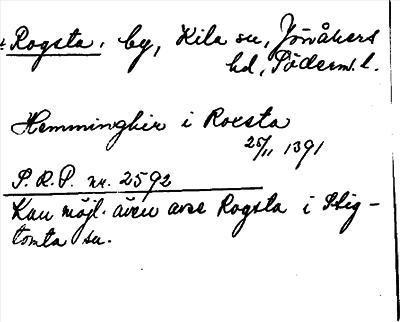 Rogsta, by, Kila sn, Jönåkers
hd, Söderm. l.
Hemmingher i Rocsta
25/11 1391
S. R. P. nr. 2592
Kan möjl. även avse Rogsta i Stig-
tomta sn.